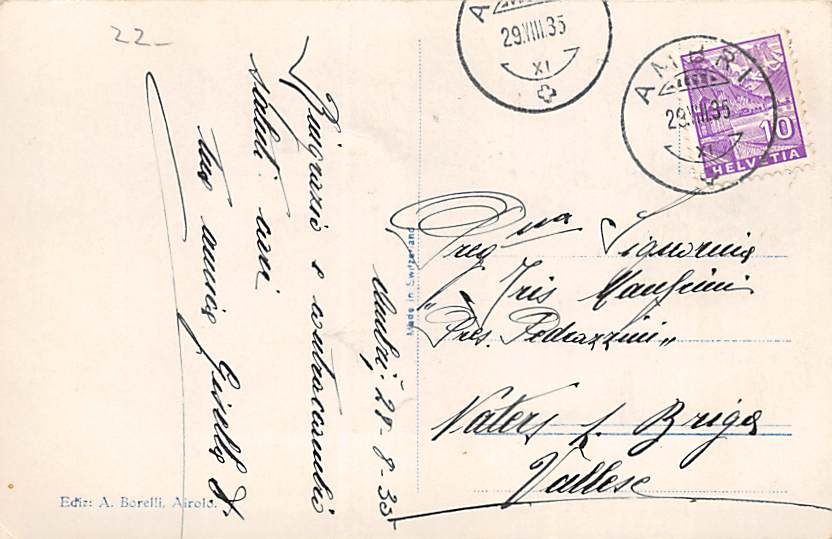 22-
Ambrì, 28-8-35
Ringrazio e contraccambio
saluti cari
tua amica Gisella
Ediz: A. Borelli, Airolo.
Made in Switzerland
29.VIII.35
XI
AMBRI
29.VIII.35
XI
10
HELVETIA
Preg.ma Signorina
Iris Manfrini
"Pres. Pedrazzini"
Naters p. Briga
Vallese